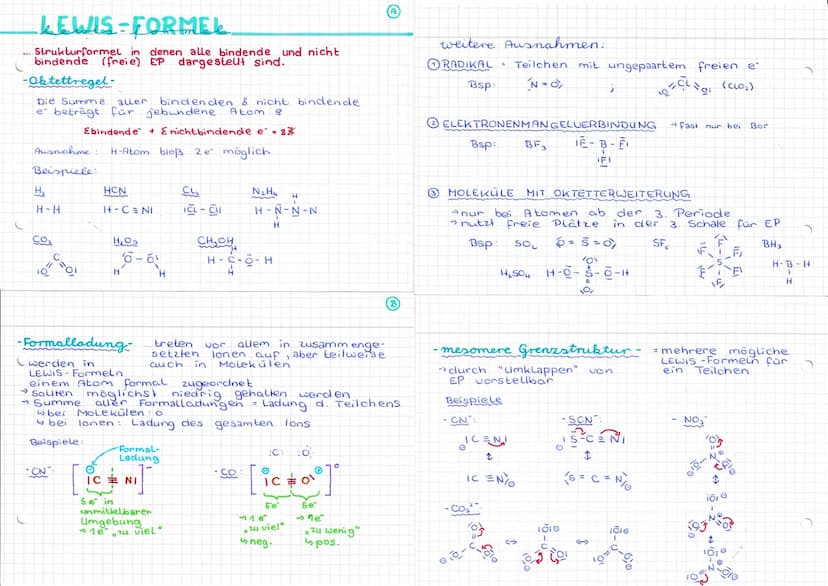 A
LEWIS-FORMEL
... Strukturformel in denen alle bindende und nicht
bindende (freie) EP dargestellt sind.
-Oktettregel-
Die Summe aller bindenden & nicht bindende
e⁻ beträgt für jebundene Atom 8
Σbindende⁻ + Σnichtbindende e⁻ = 8
Ausnahme: H-Atom bloß 2e⁻ möglich
Beispiele:
H₂ HCN Cl₂ N₂H₄
H-H H-C≡N| |C̅l-C̅l| H-N̅-N̅-N
H H
CO₂ H₂O₂ CH₃OH
H
H-C-O̅-H
H
weitere Ausnahmen:
① RADIKAL = Teilchen mit ungepaartem freien e⁻
Bsp: N=O ; (ClO₂)
② ELEKTRONENMANGELVERBINDUNG → fast nur bei Bor
Bsp: BF₃ |F̅-B-F̅|
|F̲|
③ MOLEKÜLE MIT OKTETTERWEITERUNG
→ nur bei Atomen ab der 3. Periode
→ nutzt freie Plätze in der 3. Schale für EP
Bsp: SO₂ O=S=O SF₆ BH₃
H-B-H
H
H₂SO₄ H-O̅-S-O̅-H
B
-Formalladung- treten vor allem in zusammenge-
setzten Ionen auf, aber teilweise
auch in Molekülen
werden in
LEWIS-Formeln
einem Atom formal zugeordnet
→ sollten möglichst niedrig gehalten werden
→ Summe aller Formalladungen = Ladung d. Teilchens
↳ bei Molekülen: 0
↳ bei Ionen: Ladung des gesamten Ions
Beispiele:
Formal-
Ladung
- CN⁻: [|C≡N|]⁻
5e⁻ in
unmittelbarer
Umgebung
→ 1e⁻ „zu viel"
:C: :O:
- CO: [|C≡O|]⁰
5e⁻ 5e⁻
→ 1e⁻ → 1e⁻
„zu viel" „zu wenig"
↳ neg. ↳ pos.
-mesomere Grenzstruktur- = mehrere mögliche
LEWIS-Formeln für
ein Teilchen
→ durch "Umklappen" von
EP vorstellbar
Beispiele
- CN⁻: - SCN⁻: - NO₃⁻
|C≡N| |S̅-C≡N|
↕ ↕ ↕
|C=N⊖ S=C=N⊖
- CO₃²⁻:
↔ ↔
↕